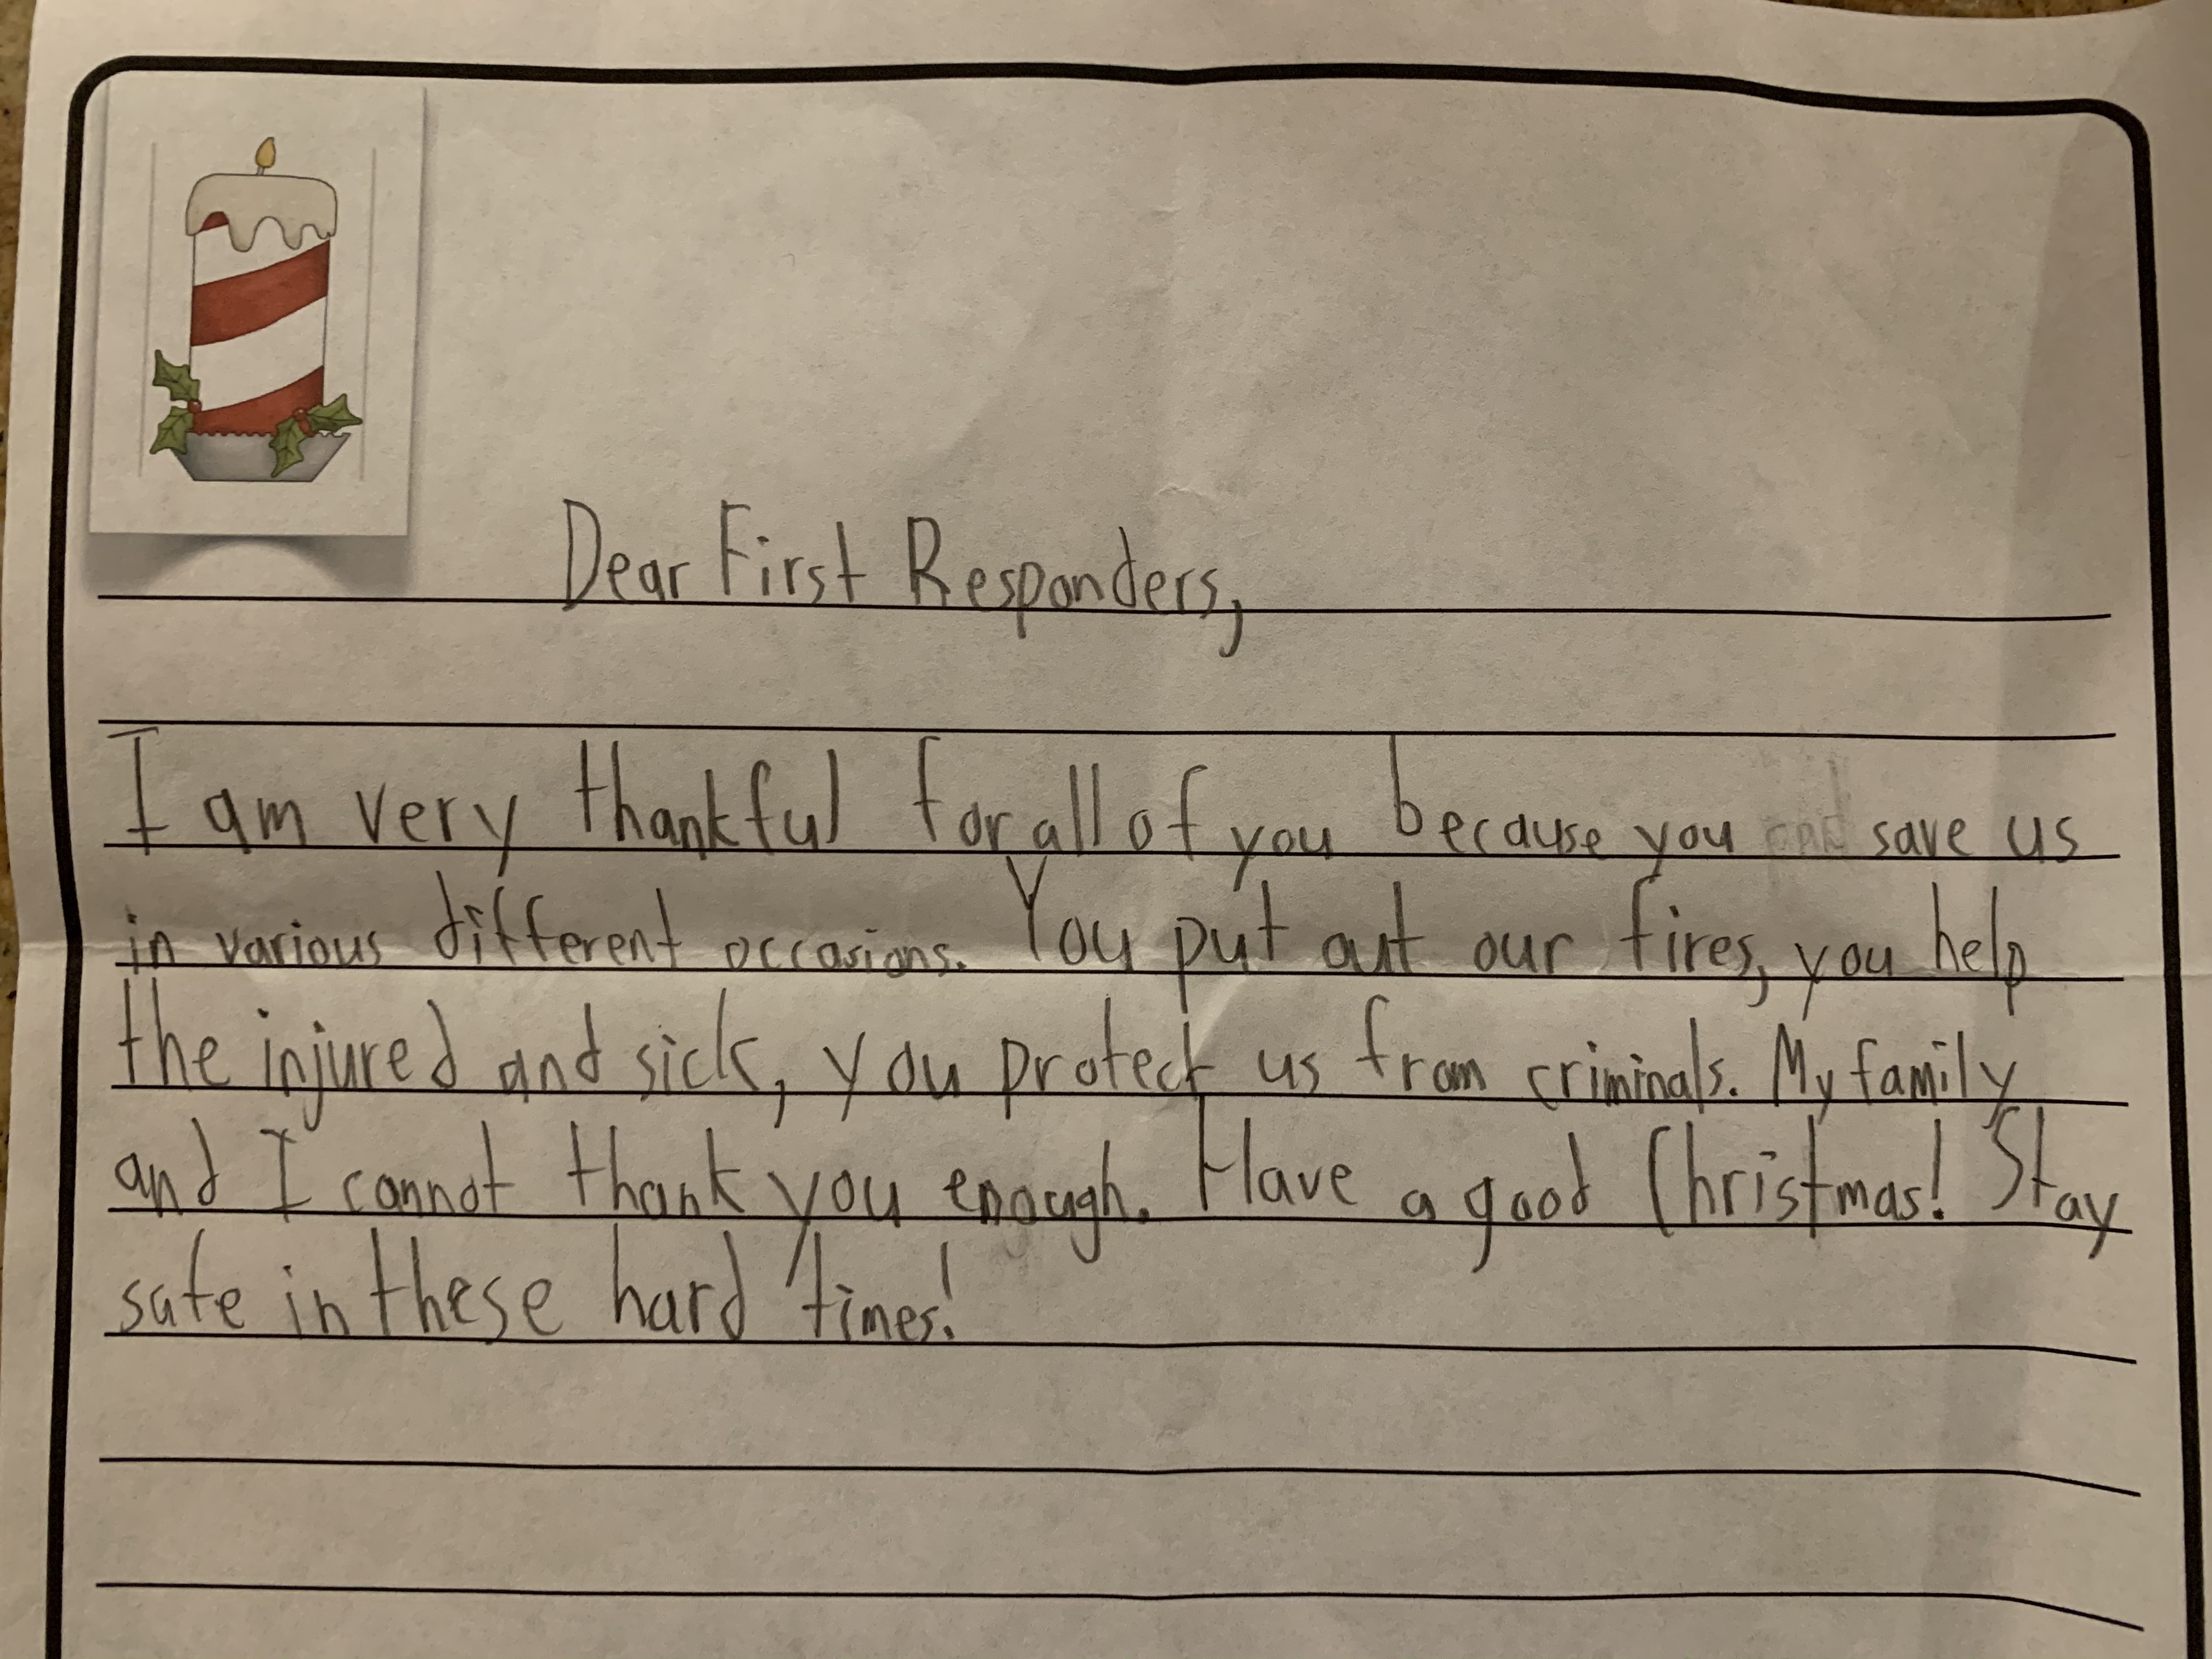 Dear First Responders,
I am very thankful for all of you because you save us
in various different occasions. You put out our fires, you help
the injured and sick, you protect us from criminals. My family
and I cannot thank you enough. Have a good Christmas! Stay
safe in these hard times!